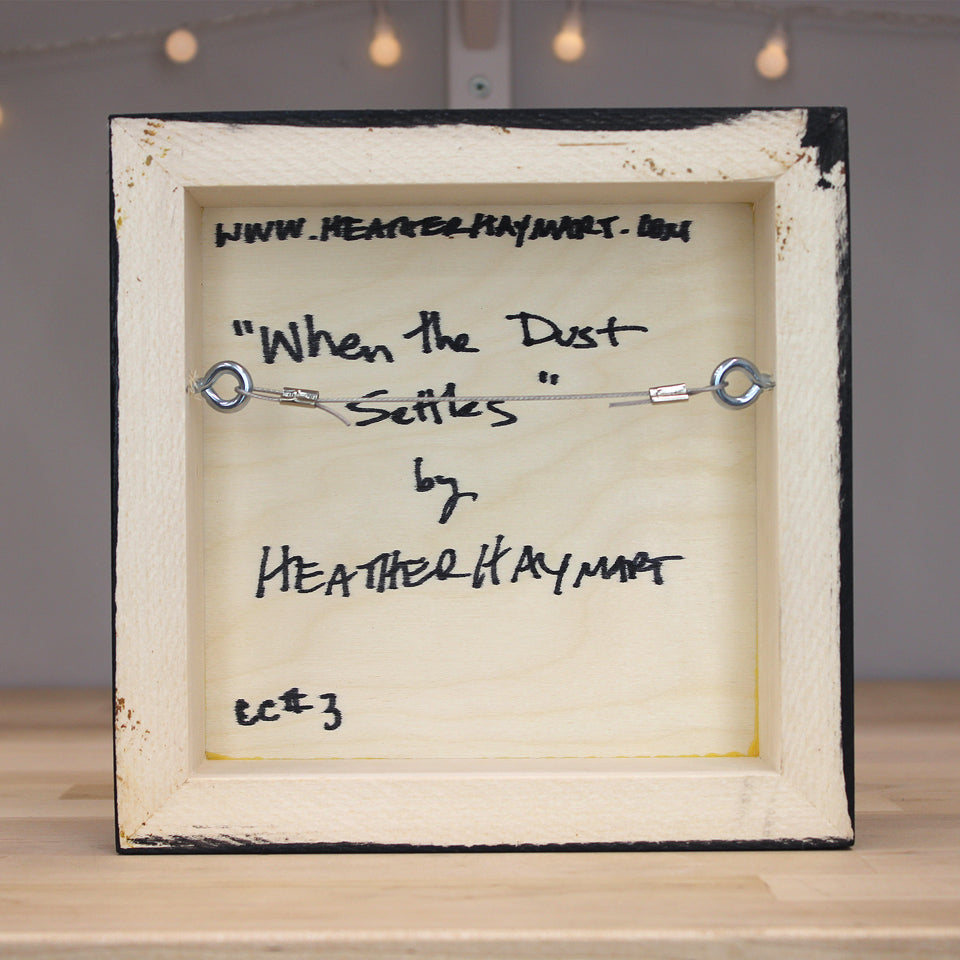 WWW.HEATHERHAYMART.COM
"When the Dust
Settles"
by
HEATHER HAYMART
CC#3